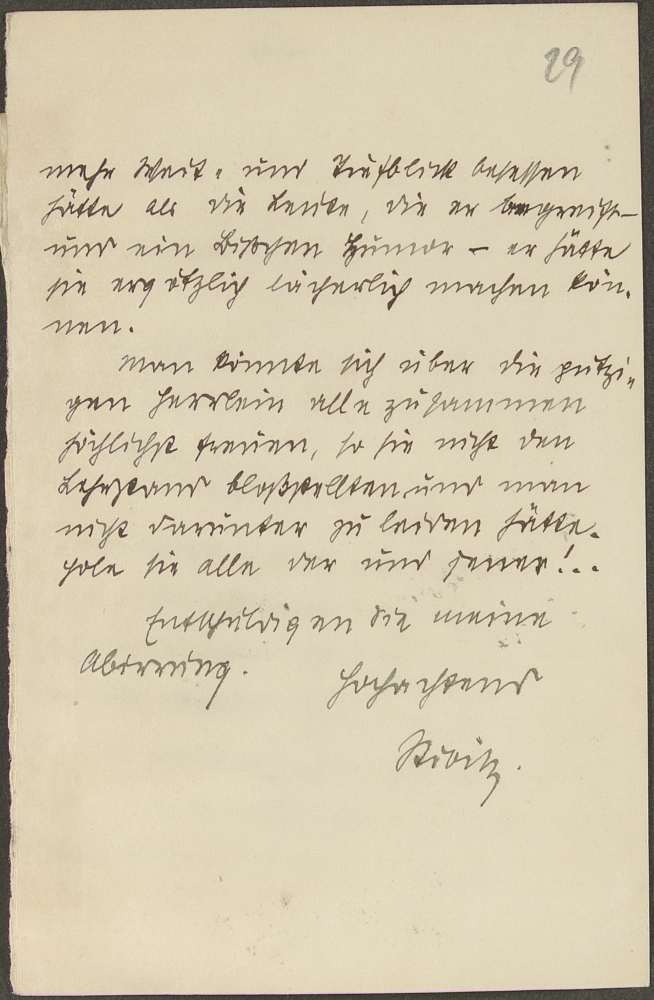 29
mehr Weit- und Tiefblick besessen
hätte als die Leute, die er begreift –
und ein Bißchen Humor – er hätte
sie ergötzlich lächerlich machen kön-
nen.
Man könnte sich über die putzi-
gen Herrlein alle zusammen
höchlichst freuen, so sie nicht den
Lehrstand bloßstellten und man
nicht darunter zu leiden hätte.
Hole sie alle der und jener!..
Entschuldigen Sie meine
Abirrung.
Hochachtend